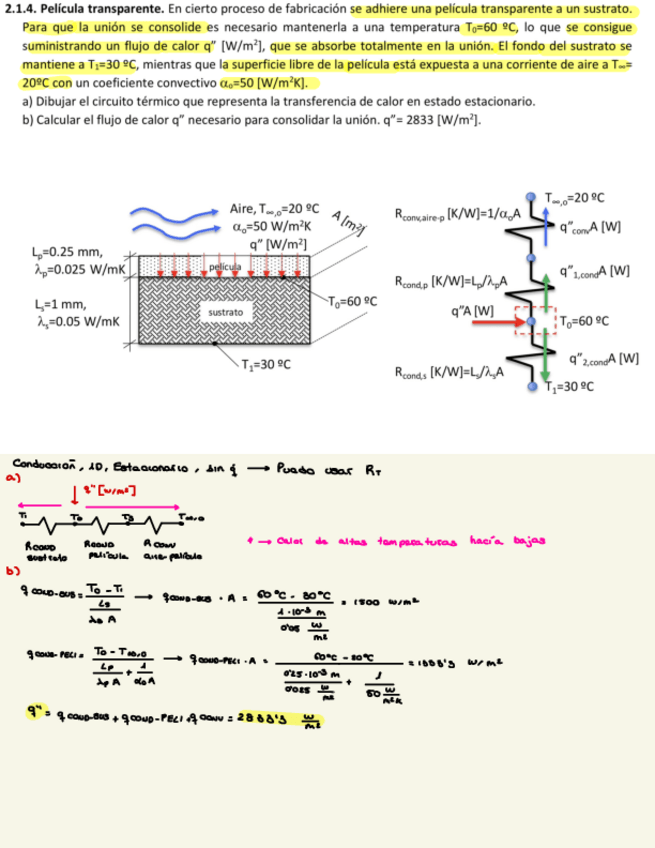 2.1.4. Película transparente. En cierto proceso de fabricación se adhiere una película transparente a un sustrato.
Para que la unión se consolide es necesario mantenerla a una temperatura T₀=60 ºC, lo que se consigue
suministrando un flujo de calor q” [W/m²], que se absorbe totalmente en la unión. El fondo del sustrato se
mantiene a T₁=30 ºC, mientras que la superficie libre de la película está expuesta a una corriente de aire a T∞=
20ºC con un coeficiente convectivo α₀=50 [W/m²K].
a) Dibujar el circuito térmico que representa la transferencia de calor en estado estacionario.
b) Calcular el flujo de calor q” necesario para consolidar la unión. q”= 2833 [W/m²].
Aire, T∞,o=20 ºC
αₒ=50 W/m²K
q” [W/m²]
A [m²]
Lₚ=0.25 mm,
λₚ=0.025 W/mK
película
Lₛ=1 mm,
λₛ=0.05 W/mK
sustrato
T₀=60 ºC
T₁=30 ºC
T∞,o=20 ºC
Rconv,aire-p [K/W]=1/αₒA
q”convA [W]
q”1,condA [W]
Rcond,p [K/W]=Lₚ/λₚA
q”A [W]
T₀=60 ºC
q”2,condA [W]
Rcond,s [K/W]=Lₛ/λₛA
T₁=30 ºC
Conducción, 1D, Estacionario, sin q̇ → Puedo usar RT
a)
q" [W/m²]
T₁ T₀ T∞,o
Rcond Rcond R conv
sustrato película aire-película
→ Calor de altas temperaturas hacía bajas
b)
q cond-sus = T₀ - T₁ / Ls / λs A → q cond-sus · A = 60 °C - 30 °C / 1·10⁻³ m / 0'05 W / m² = 1500 W/m²
q cond-peli = T₀ - T∞,o / Lp / λp A + 1 / α₀ A → q cond-peli · A = 60°C - 20°C / 0'25·10⁻³ m / 0'025 W / m² + 1 / 50 W / m²K = 1333'3 W/m²
q" = q cond-sus + q cond-peli,q conv = 2833'3 W / m²